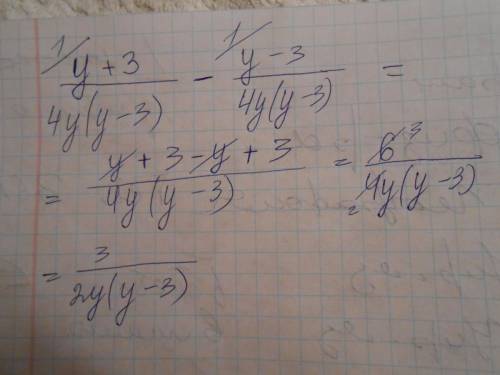 1/ y + 3 / 4y(y-3) - 1/ y - 3 / 4y(y-3) =
= y + 3 - y + 3 / 4y(y-3) = 6 3 / 4 2 y(y-3)
= 3 / 2y(y-3)